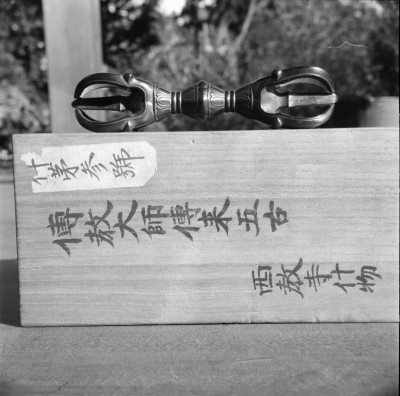 什第参號
傳教大師傳来五古
西教寺什物